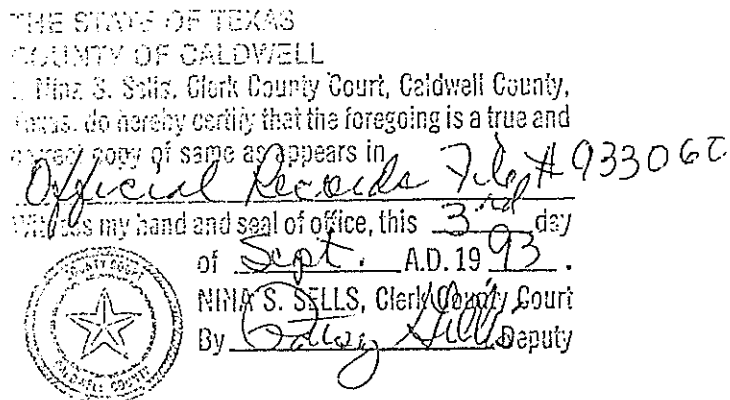 THE STATE OF TEXAS
COUNTY OF CALDWELL
I, Nina S. Sells, Clerk County Court, Caldwell County,
Texas, do hereby certify that the foregoing is a true and
correct copy of same as appears in
Official Records File # 933062
Witness my hand and seal of office, this 3rd day
of Sept. A.D. 19 93.
COUNTY COURT
CALDWELL COUNTY
NINA S. SELLS, Clerk County Court
By Deputy